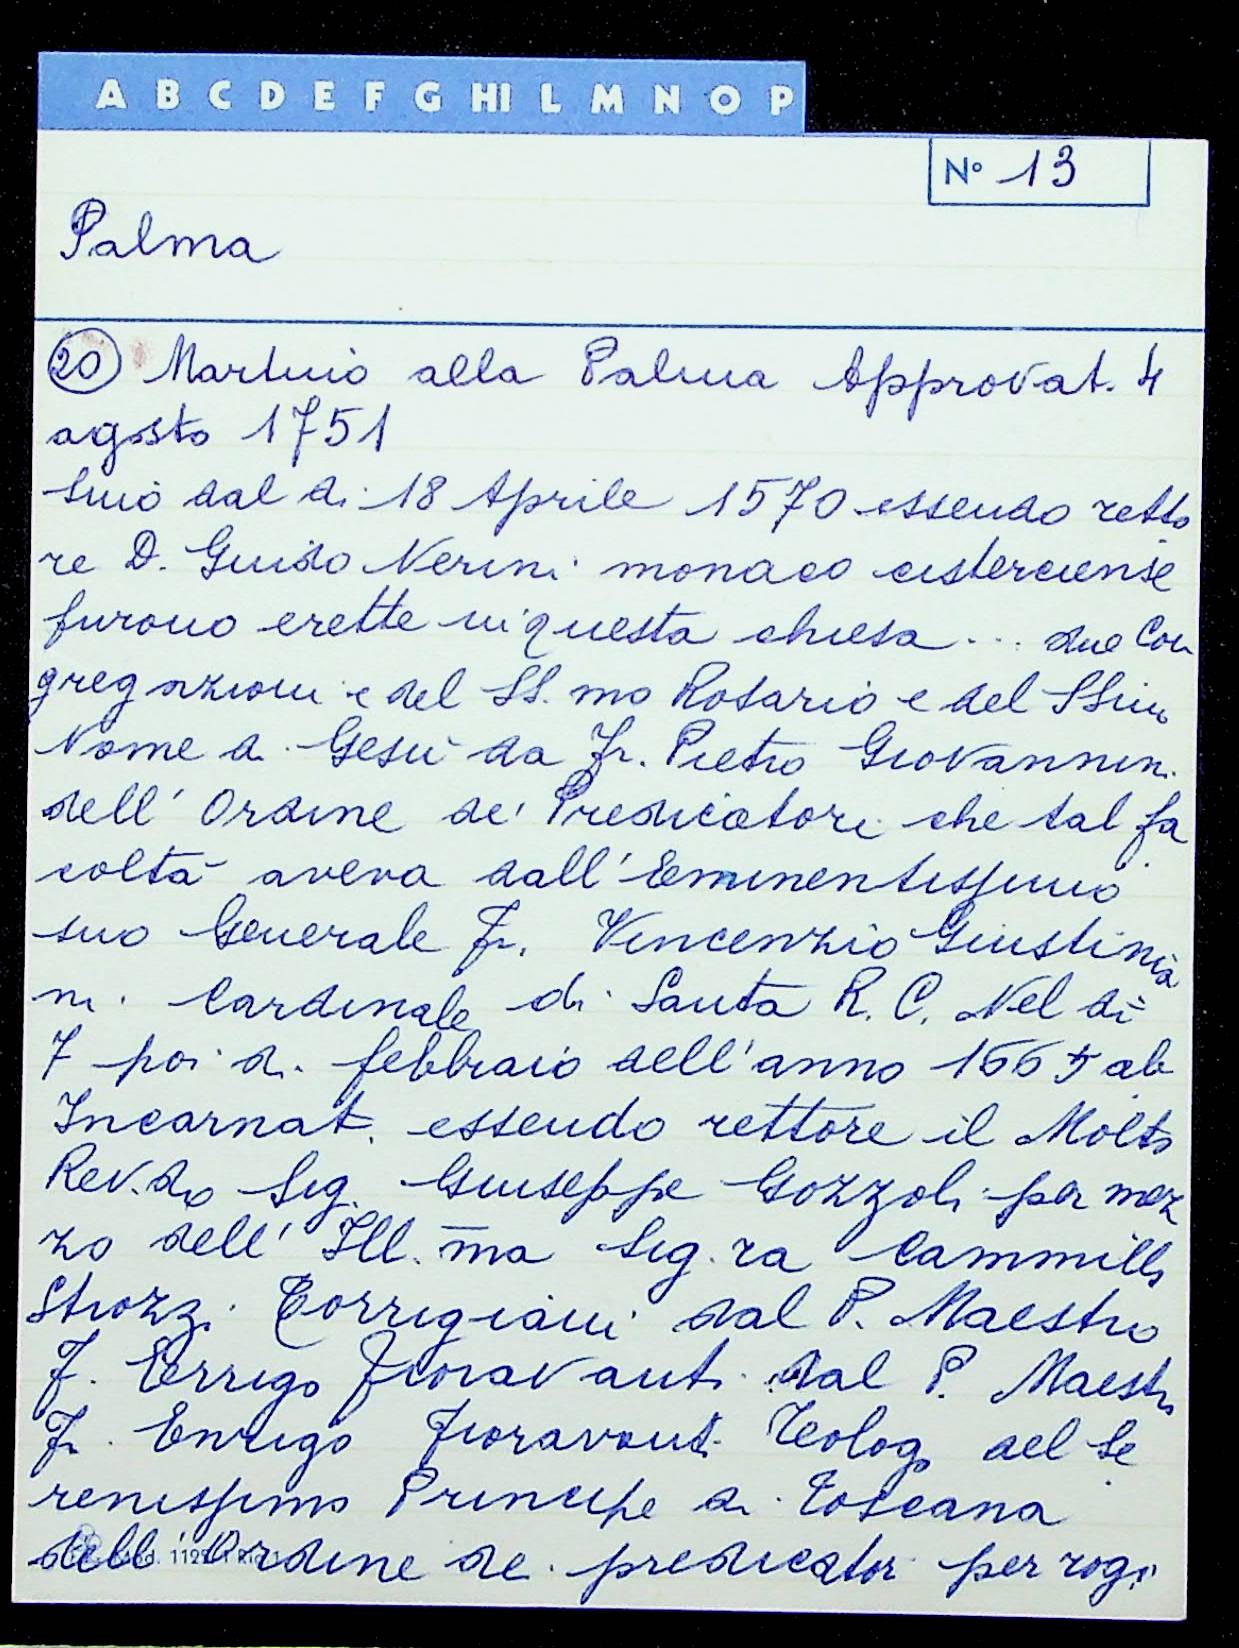 A B C D E F G HI L M N O P
N° 13
Palma
20 Martino alla Palma Approvat. 4
agosto 1751
Sino dal dì 18 Aprile 1570 essendo retto
re D. Guido Nerini monaco cisterciense
furono erette in questa chiesa ... due Con
gregazioni e del SS.mo Rosario e del SSimo
Nome di Gesù da Fr. Pietro Giovannini
dell' Ordine de' Predicatori che tal fa
coltà aveva dall' Eminentissimo
suo Generale Fr. Vincenzio Giustinia
ni Cardinale di Santa R. C. Nel dì
7 poi di febbraio dell'anno 1665 ab
Incarnat. essendo rettore il Molto
Rev.do Sig. Giuseppe Gozzoli per mez
zo dell' Ill.ma Sig.ra Cammilla
Strozzi Torrigiani dal P. Maestro
F. Errigo Fioravanti dal P. Maestro
Fr. Enrigo Fioravanti Teologo del Se
renissimo Principe di Toscana
dell' Ordine de predicatori per rogi